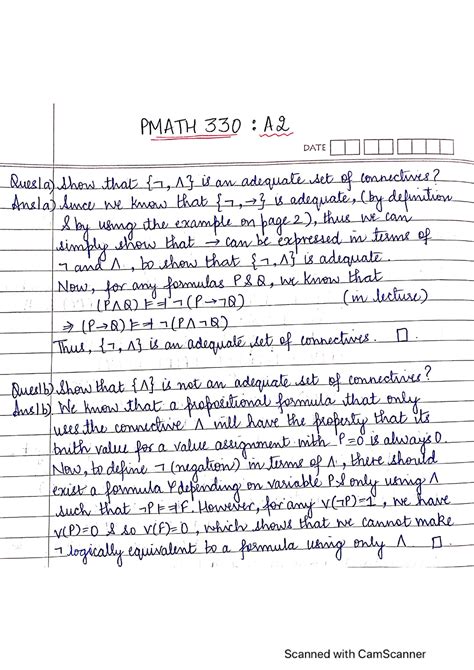 PMATH 330 : A2
DATE
Ques1a) Show that {¬, Λ} is an adequate set of connectives?
Ans1a) Since we know that {¬, →} is adequate, (by definition
& by using the example on page 2), thus we can
simply show that → can be expressed in terms of
¬ and Λ, to show that {¬, Λ} is adequate.
Now, for any formulas P & Q, we know that
(PΛQ) ⊨⫤ ¬(P→¬Q) (in lecture)
⇒ (P→Q) ⊨⫤ ¬(PΛ¬Q)
Thus, {¬, Λ} is an adequate set of connectives. □.
Ques1b) Show that {Λ} is not an adequate set of connectives?
Ans1b) We know that a propositional formula that only
uses the connective Λ will have the property that its
truth value for a value assignment with P=0 is always 0.
Now, to define ¬ (negation) in terms of Λ, there should
exist a formula F depending on variable P & only using Λ
such that ¬P ⊨⫤ F. However, for any v(¬P)=1, we have
v(P)=0 & so v(F)=0, which shows that we cannot make
¬ logically equivalent to a formula using only Λ □.
Scanned with CamScanner